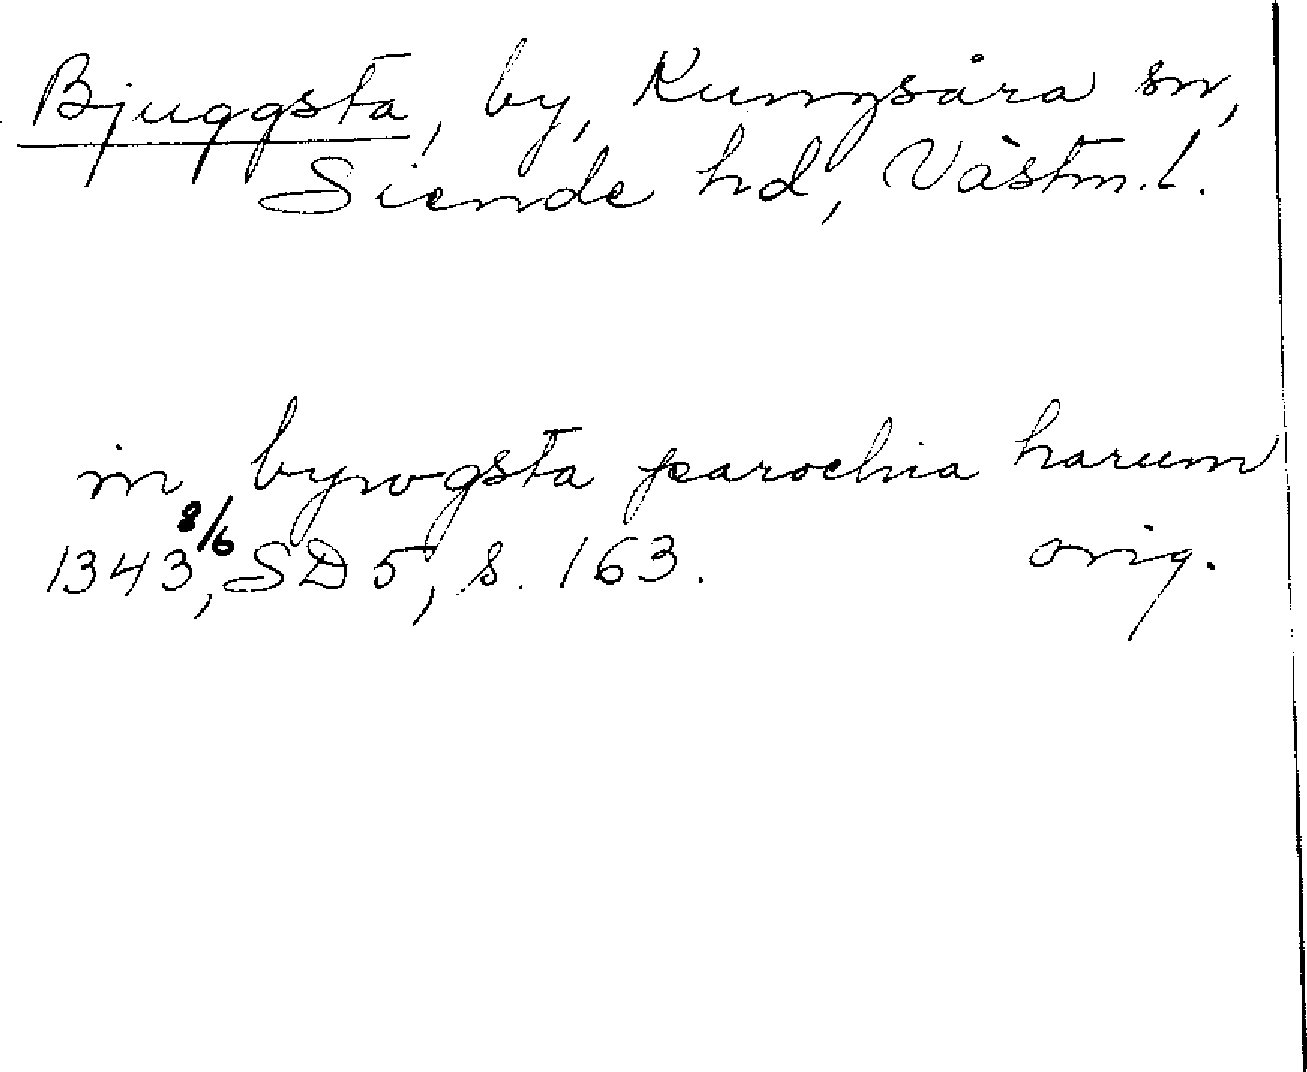 Bjuggsta, by, Kungsåra sn,
Siende hd, Västm.l.
in bywgsta parochia harum
1343 8/6, SD 5, s. 163. orig.